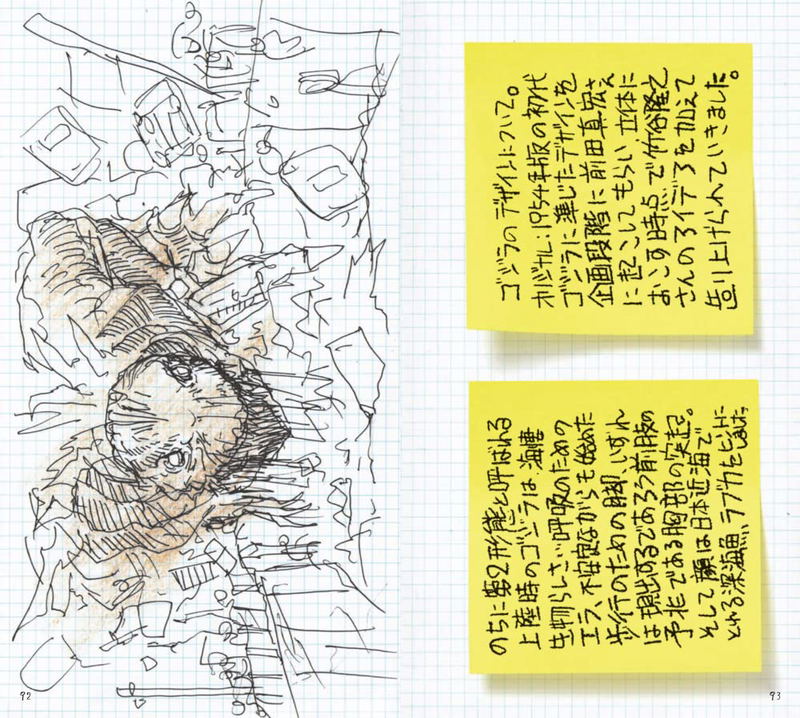 ゴジラのデザインについて。
オリジナル:1954年版の初代
ゴジラに準じたデザインを
企画段階に前田真宏さん
に起こしてもらい、立体に
おこす時点で竹谷隆之
さんのアイデアを加えて
造り上げられていきました。
のちに第2形態と呼ばれる
上陸時のゴジラは、海棲
生物らしさい呼吸のための
エラ、不安定ながらも始めた
歩行のための脚、いずれ
は現出するであろう前肢の
予兆である胸部の突起。
そして顔は日本近海で
とれる深海魚、ラブカをヒントにしました
92
93